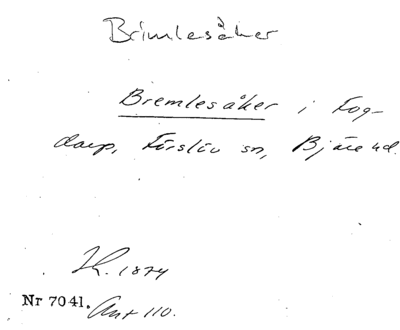 Brimlesåker
Bremlesåker i Fog-
darp, Förslöv sn, Bjäre hd.
1874
Nr 7041. Ant 110.